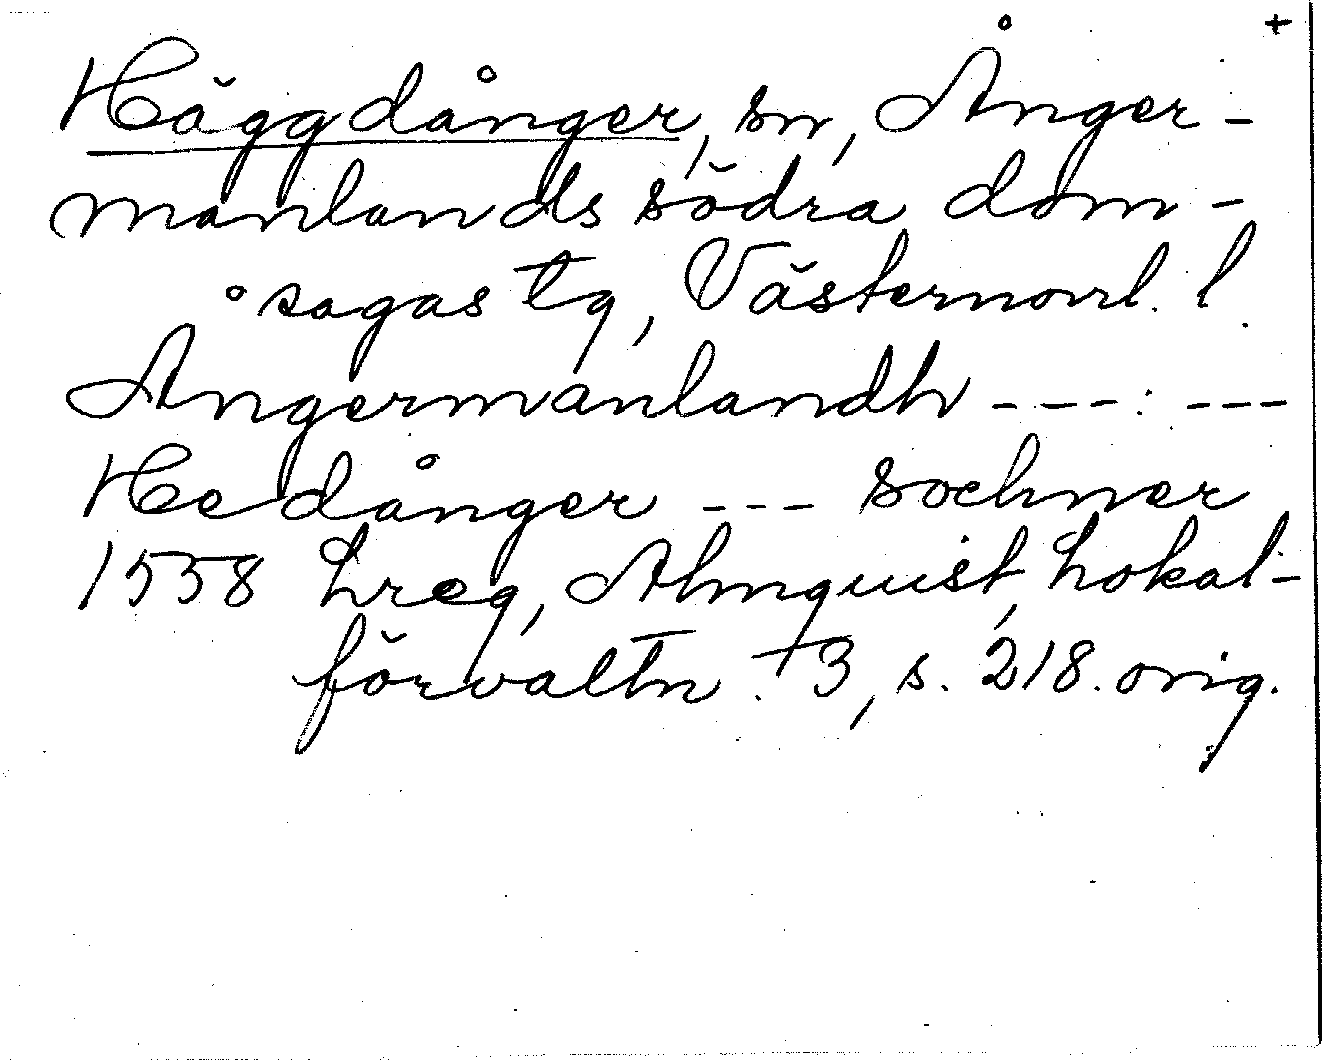 +
Häggdånger, sn, Ånger-
manlands södra dom-
sagas tg, Västernorrl. l.
Ångermanlandh ---: ---
Hedånger --- sochner
1558 hreg, Almquist, Lokal-
förvaltn. 3, s. 218. orig.